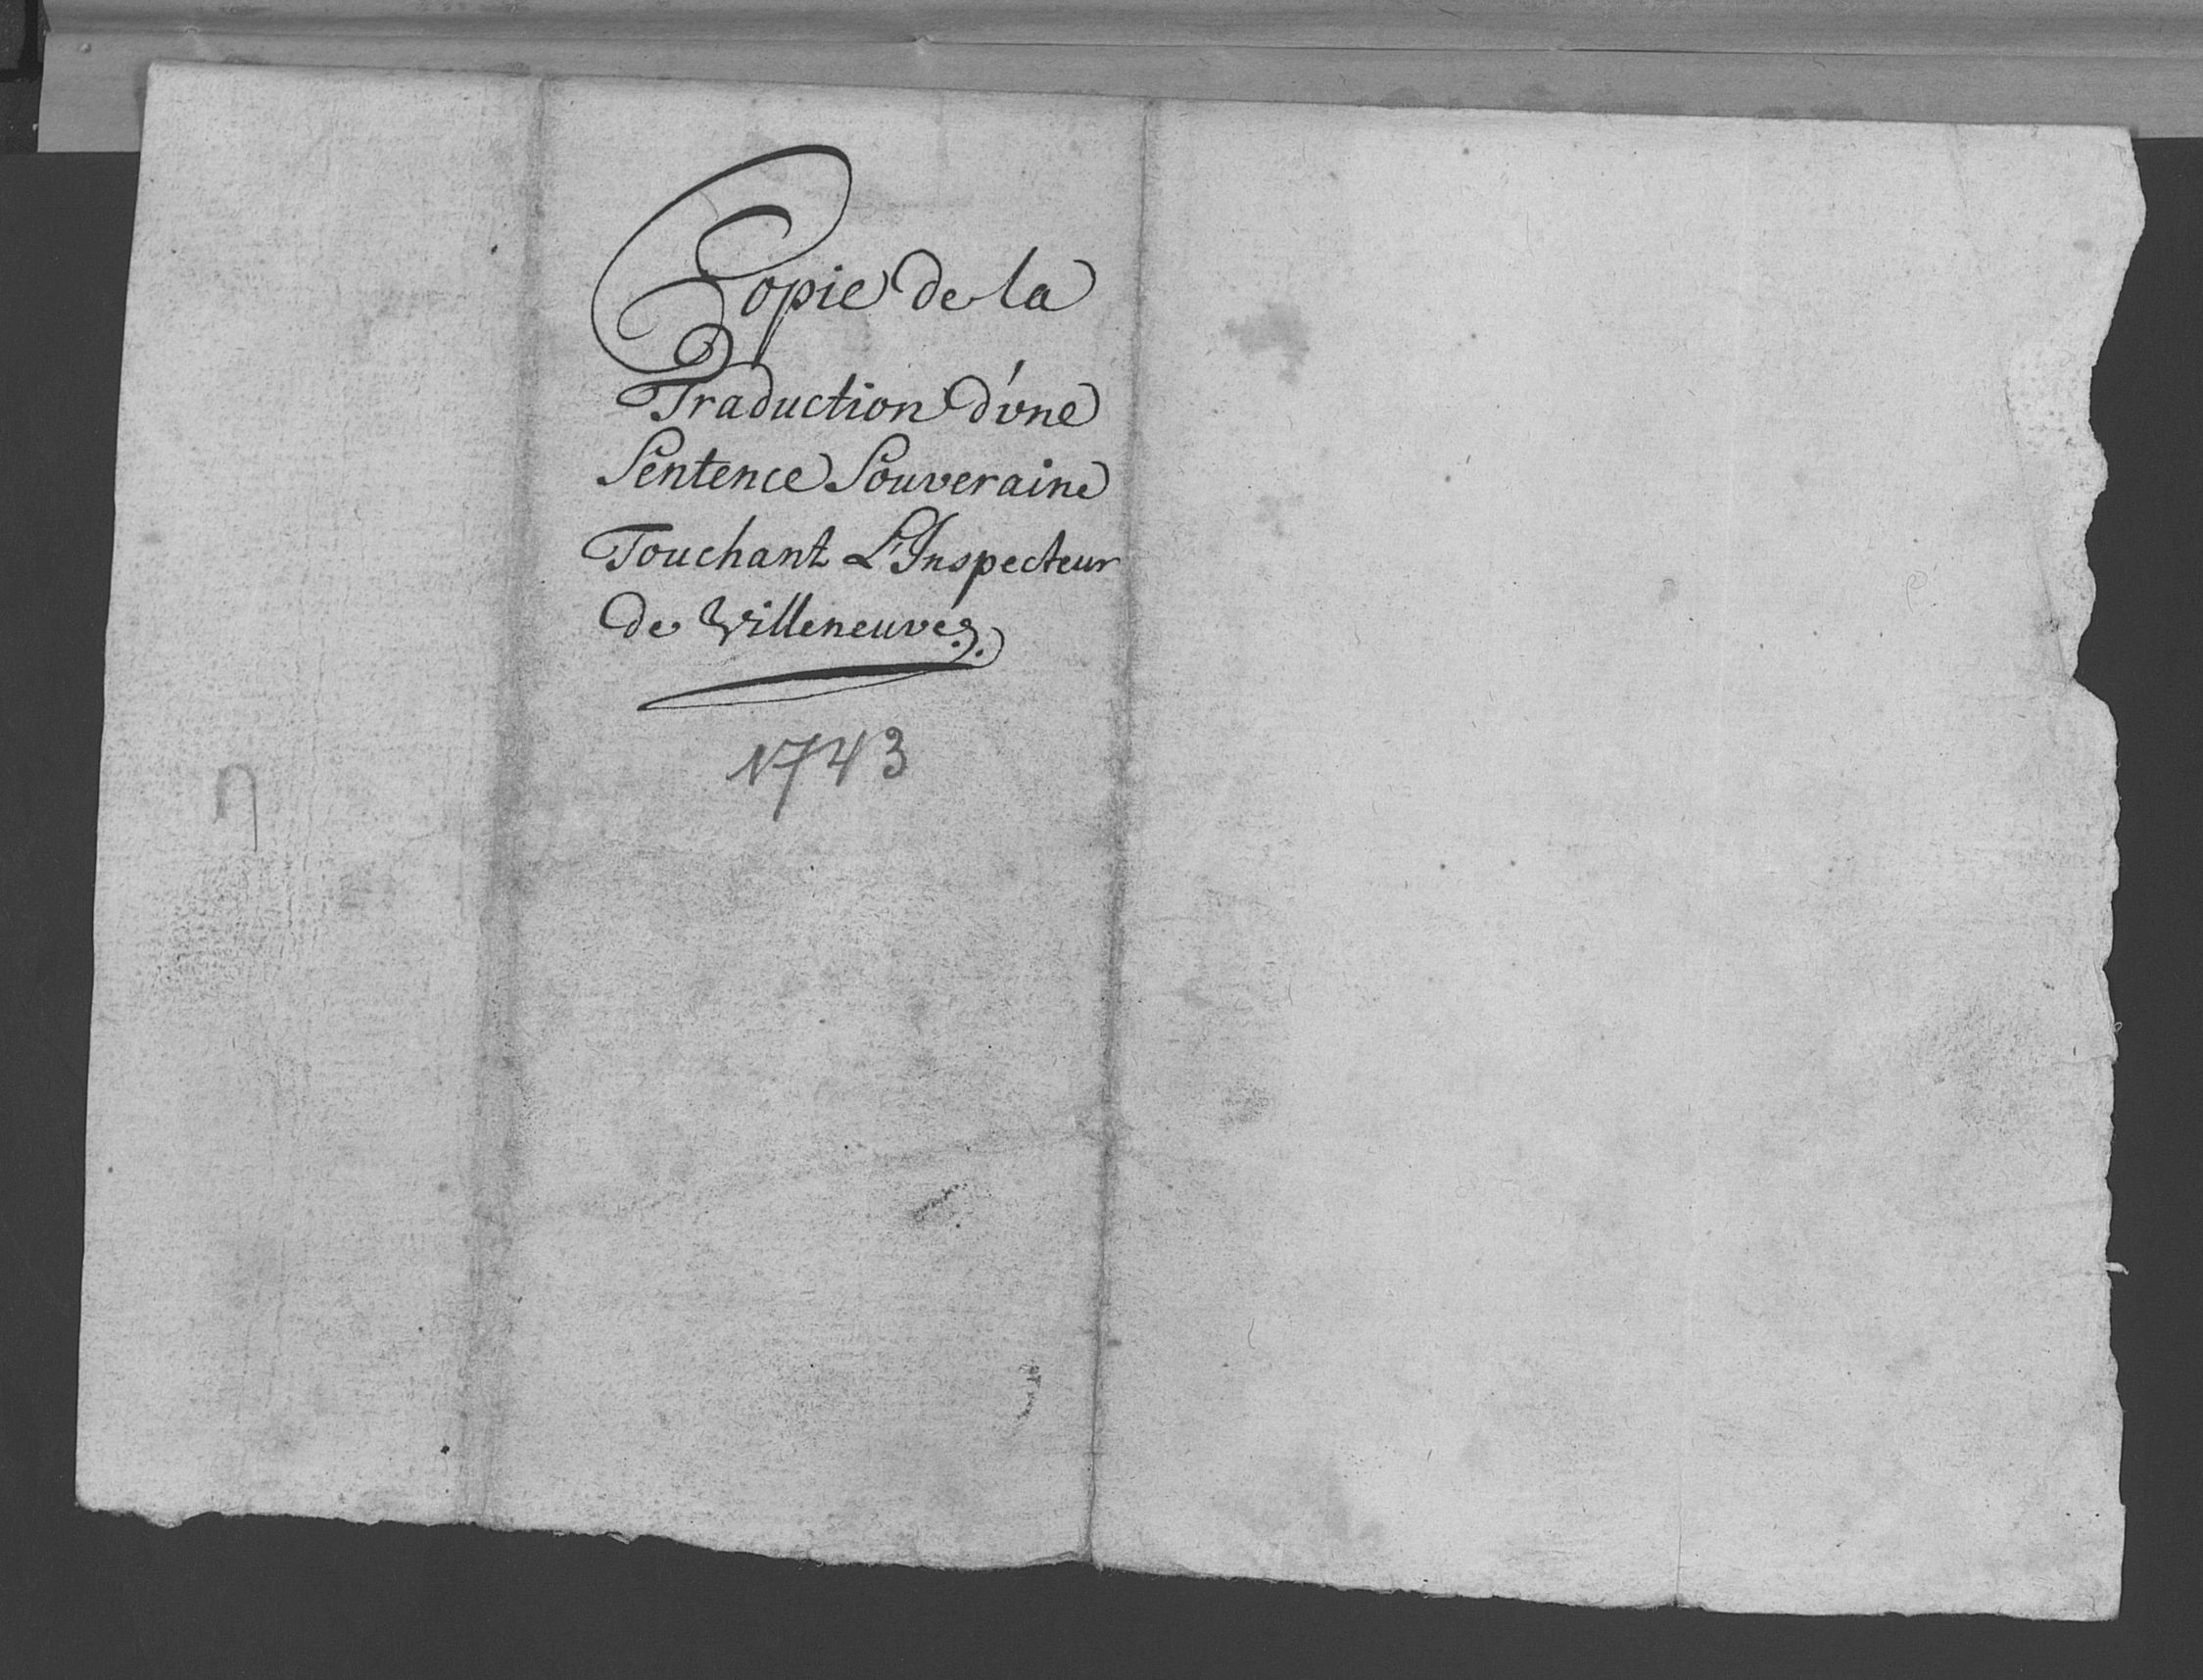 Copie de la
Traduction d'vne
Sentence Souveraine
Touchant L'Inspecteur
de Villeneuve.
1743